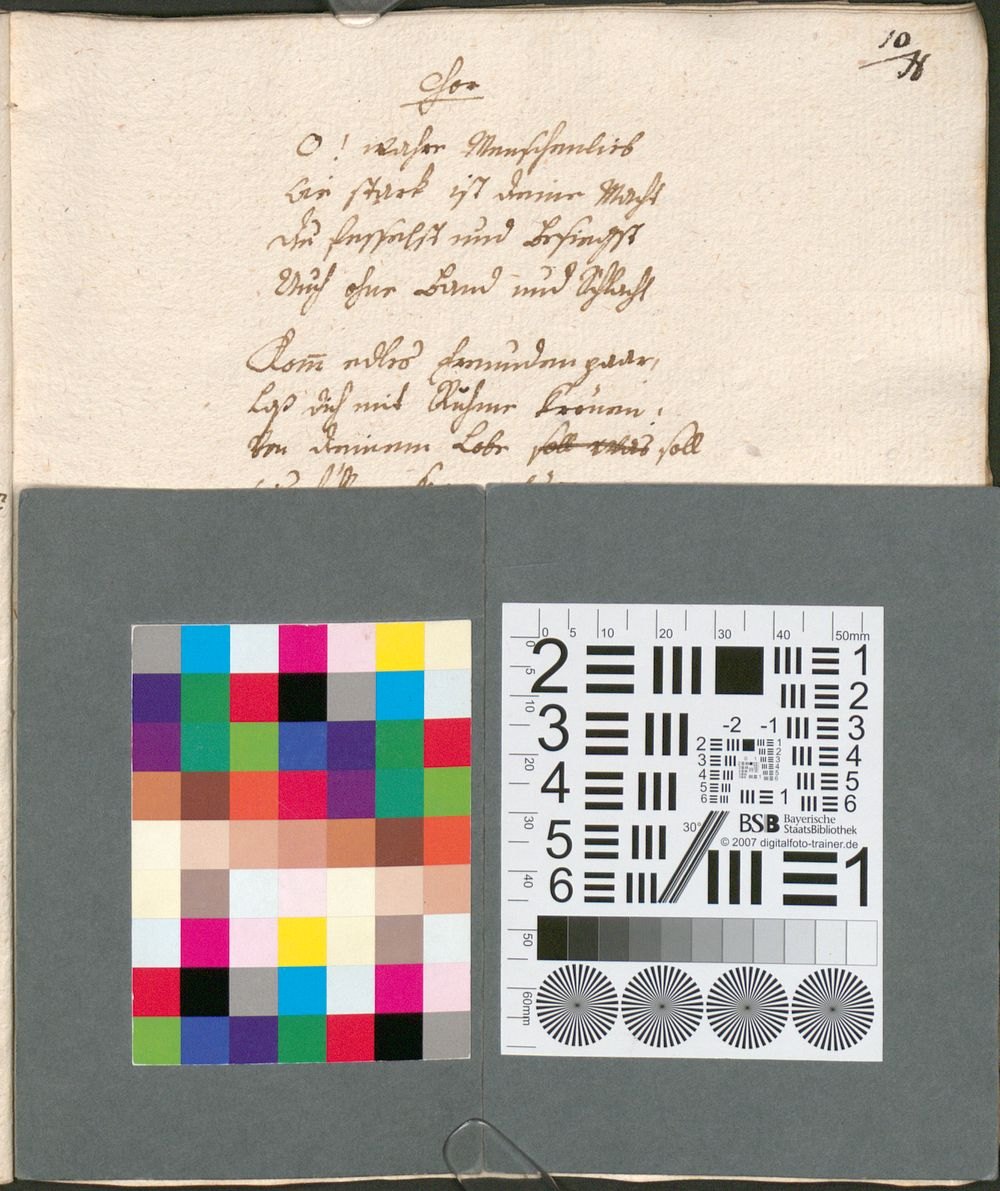 10
78
Chor
O! wahre Menschenlieb
Wie stark ist deine Macht
du fesselst und besiegst
Auch ohne Band und Schlacht
Kom̅ edles Freundenpaar,
Laß dich mit Ruhme krönen,
Von deinem Lobe soll was soll
0 5 10 20 30 40 50mm
0 5 10 20 30 40 50 60mm
2 1
2
3 3
-2 -1
2 1
2
3 3
4 4
5 5
6 6
1
4 4
5
6
30°
BSB Bayerische
StaatsBibliothek
© 2007 digitalfoto-trainer.de
5
6
1